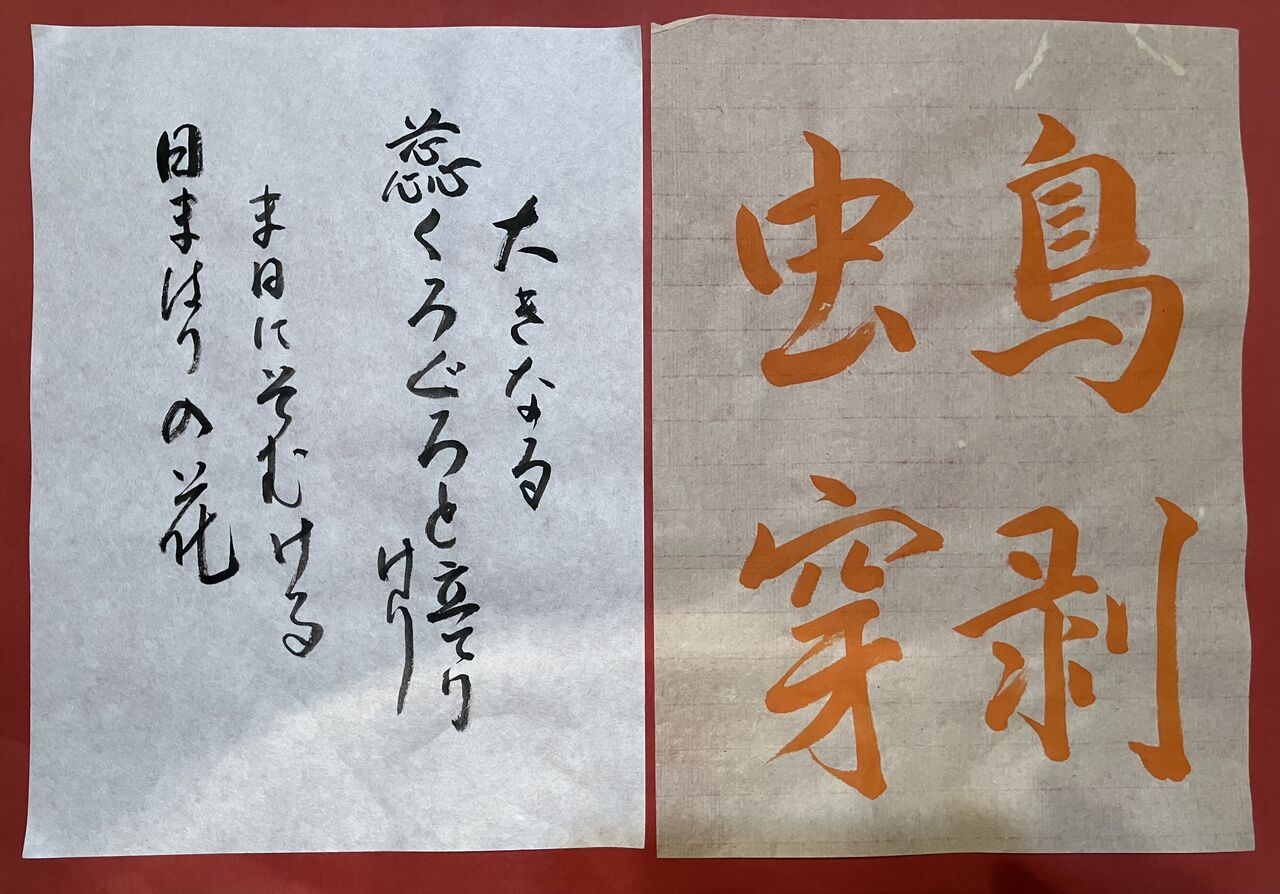 大きなる
蕊くろぐろと立てり
けり
ま日にそむける
日まはりの花
鳥剥
虫穿